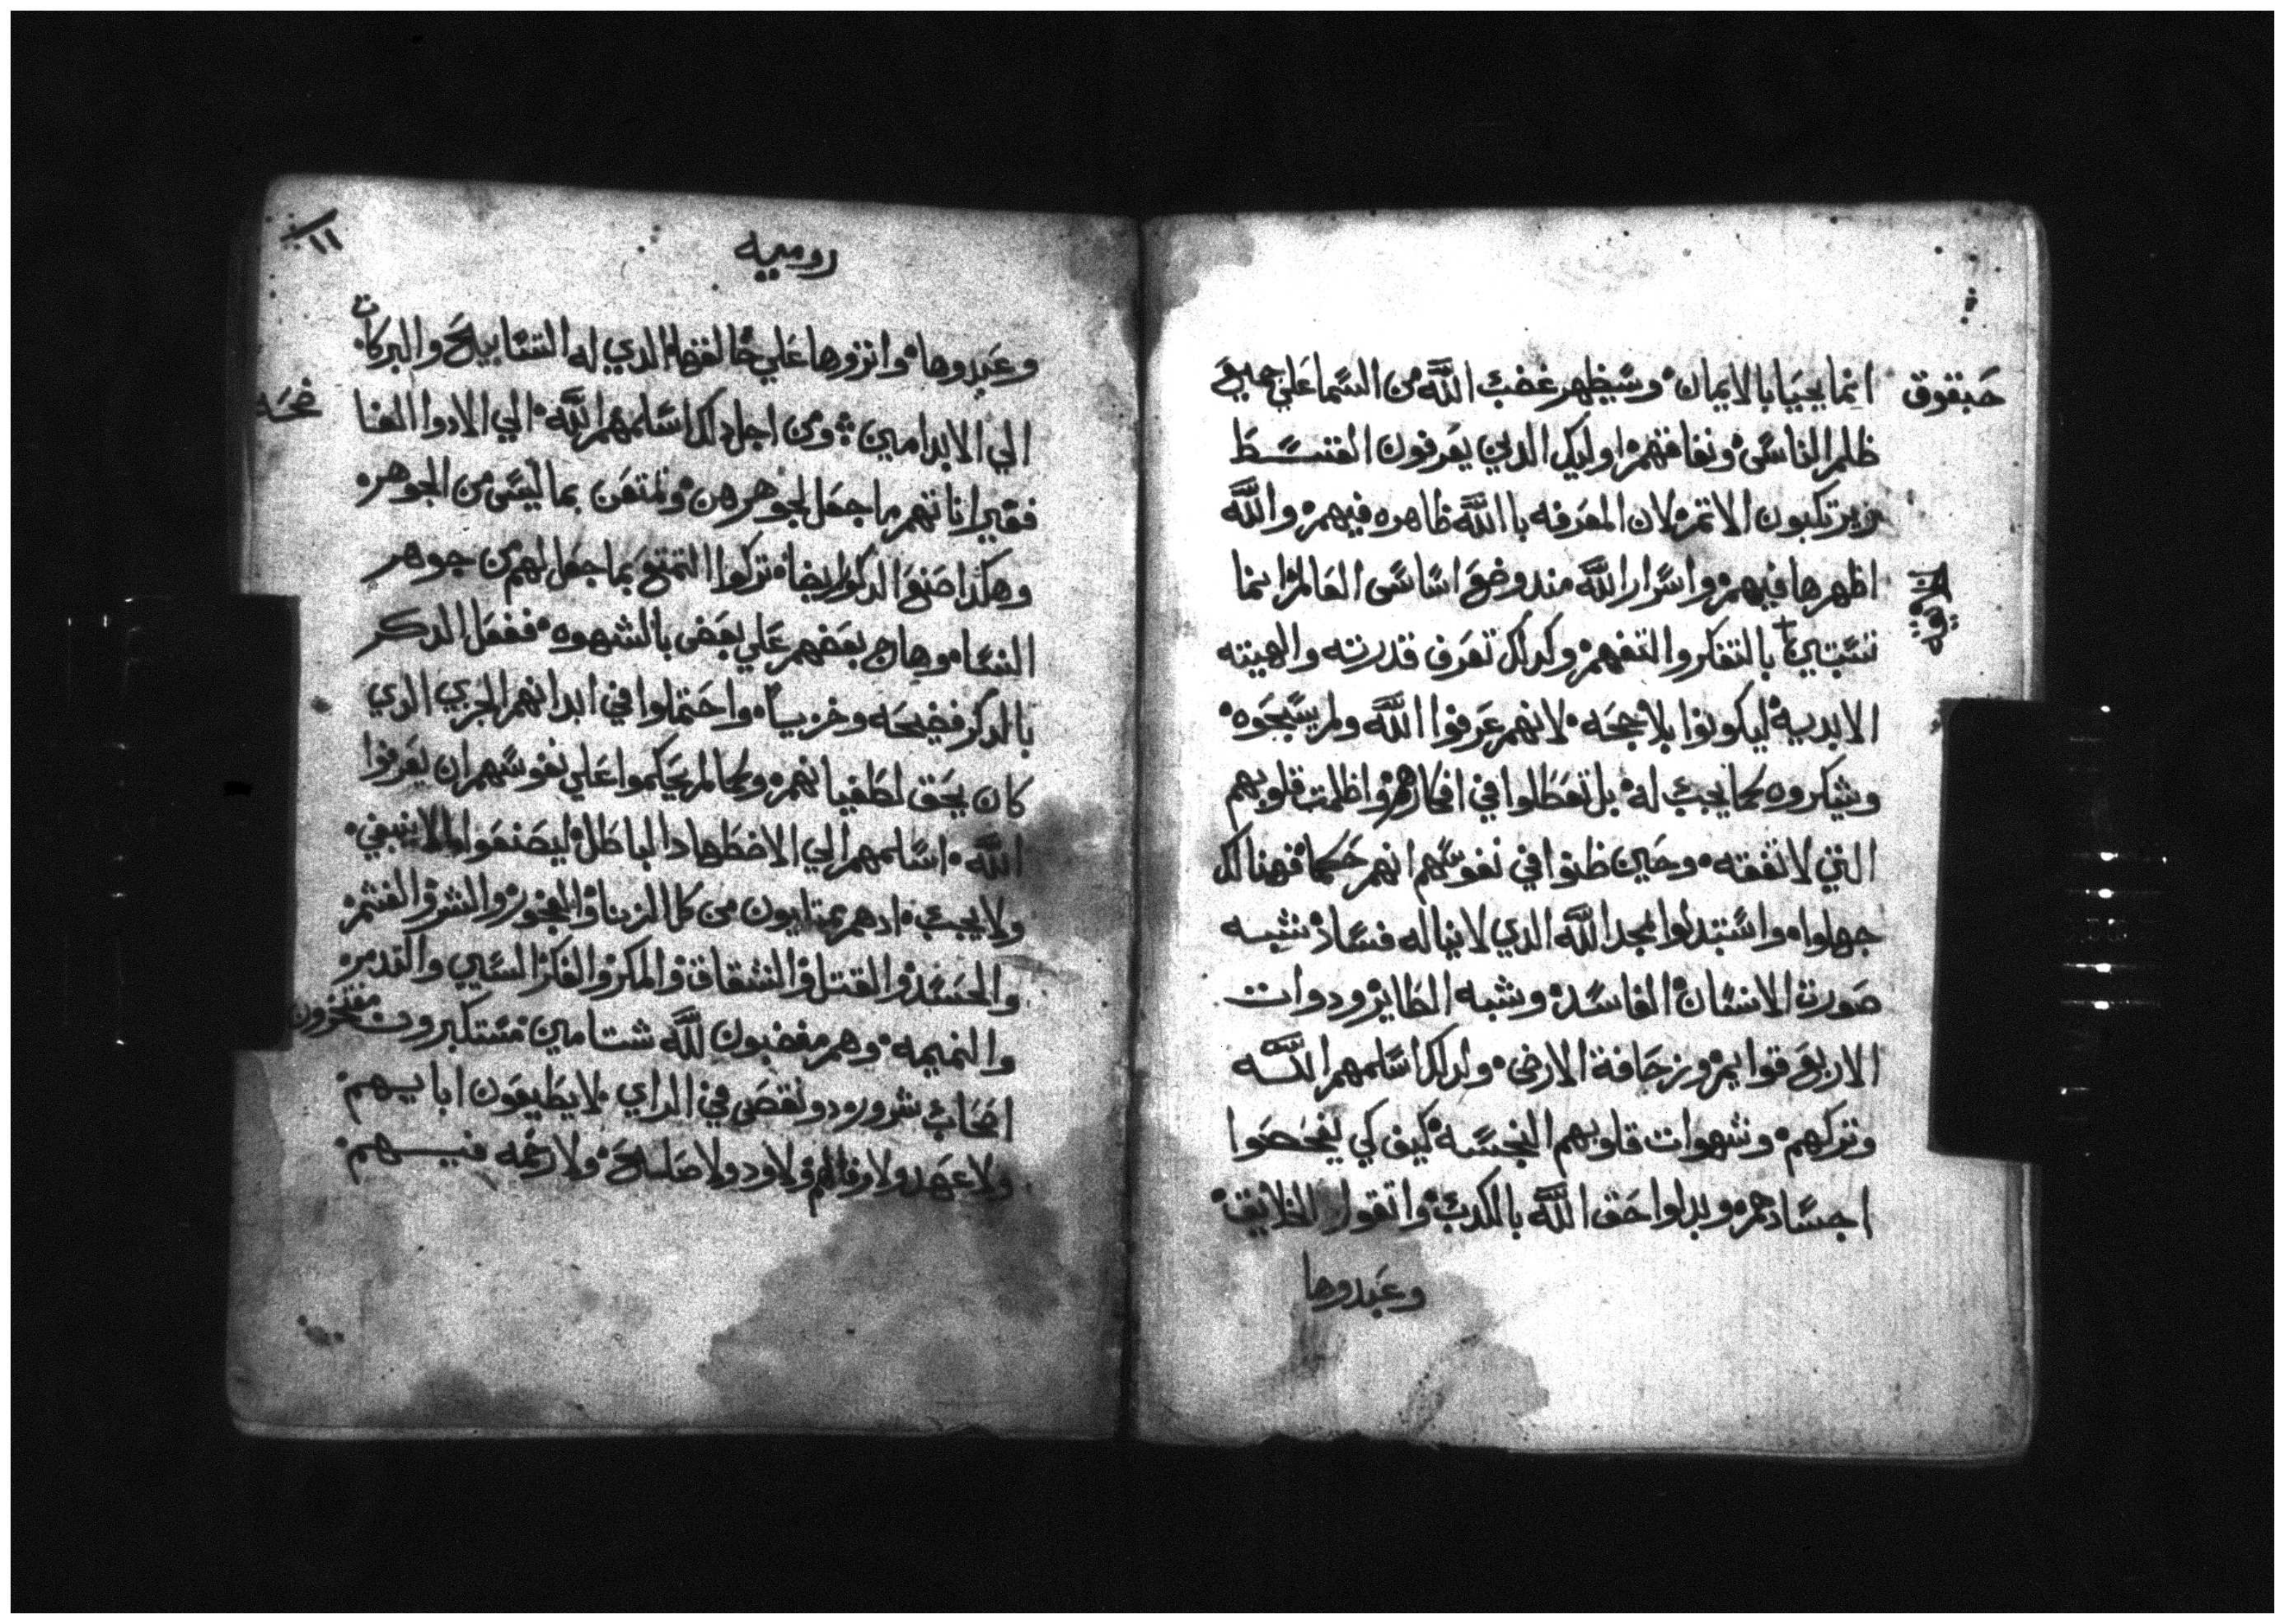 حبقوق
انما يحيا بالايمان۰ وسيظهر غضب الله من السما علي جميع
ظلم الناس۰ ونفاقهم۰ اوليك الدين يعرفون القسط
ويرتكبون الاتم۰ لان المعرفه باالله ظاهره فيهم۰ والله
اظهرها فيهم۰ واسرار الله مند وضع اساس العالم۰ انما
تستبين بالتفكر والتفهم۰ وكدلك تعرف قدرته والهيته
الابديه۰ ليكونوا بلا حجه۰ لانهم عرفوا الله ولم يسبحوه۰
ويشكروه كما يجب له۰ بل تعطلوا في افكارهم۰ واظلمت قلوبهم
التي لا تفقه۰ وحين ظنوا في نفوسهم انهم حكما۰ فهنالك
جهلوا۰ واستبدلوا مجد الله الدي لا يناله فساد۰ بشبه
صورت الانسان الفاسد۰ وشبه الطاير۰ ودوات
الاربع قوايم۰ وزحافة الارض۰ ولدلك اسلمهم الله
وتركهم۰ وشهوات قلوبهم النجسه۰ كيف كي يفضحوا
اجسادهم۰ وبدلوا حق الله بالكدب۰ واتقوا الخلايق۰
وعبدوها
روميه
١١
وعبدوها۰ واتروها علي خالقها الدي له التسابيح والبركات
الي الابد امين۰ ومن اجل دلك اسلمهم الله۰ الي الادوا الفا
ضحه
فغير اناتهم ما جعل لجوهرهن۰ وتمتعن بما ليس من الجوهر۰
وهكدا صنع الدكور ايضا۰ تركوا التمتع بما جعل لهم من جوهر
النسا۰ وهاج بعضهم علي بعض بالشهوه۰ ففعل الدكر
بالدكر فضيحه وخزيا۰ واحتملوا في ابدانهم الجزي الدي
كان يحق لطغيانهم۰ وكما لم يحكموا علي نفوسهم ان يعرفوا
الله۰ اسلمهم الي الاضطهاد الباطل۰ ليصنعوا مالا ينبغي۰
ولا يجب۰ ادهم ممتليون من كل الزنا۰ والفجور۰ والشر۰ والغشم۰
والحسد۰ والقتل۰ والشقاق۰ والمكر۰ والفكر السيي والتدمر۰
والنميمه۰ وهم مغضبون لله شتامين۰ مستكبرون مفتخرون
اصحاب شرور۰ دو نقص في الراي۰ لا يطيعون ابايهم۰
ولا عهد ولا وفا لهم۰ ولا ود ولا صلح۰ ولا رحمه فيهم۰